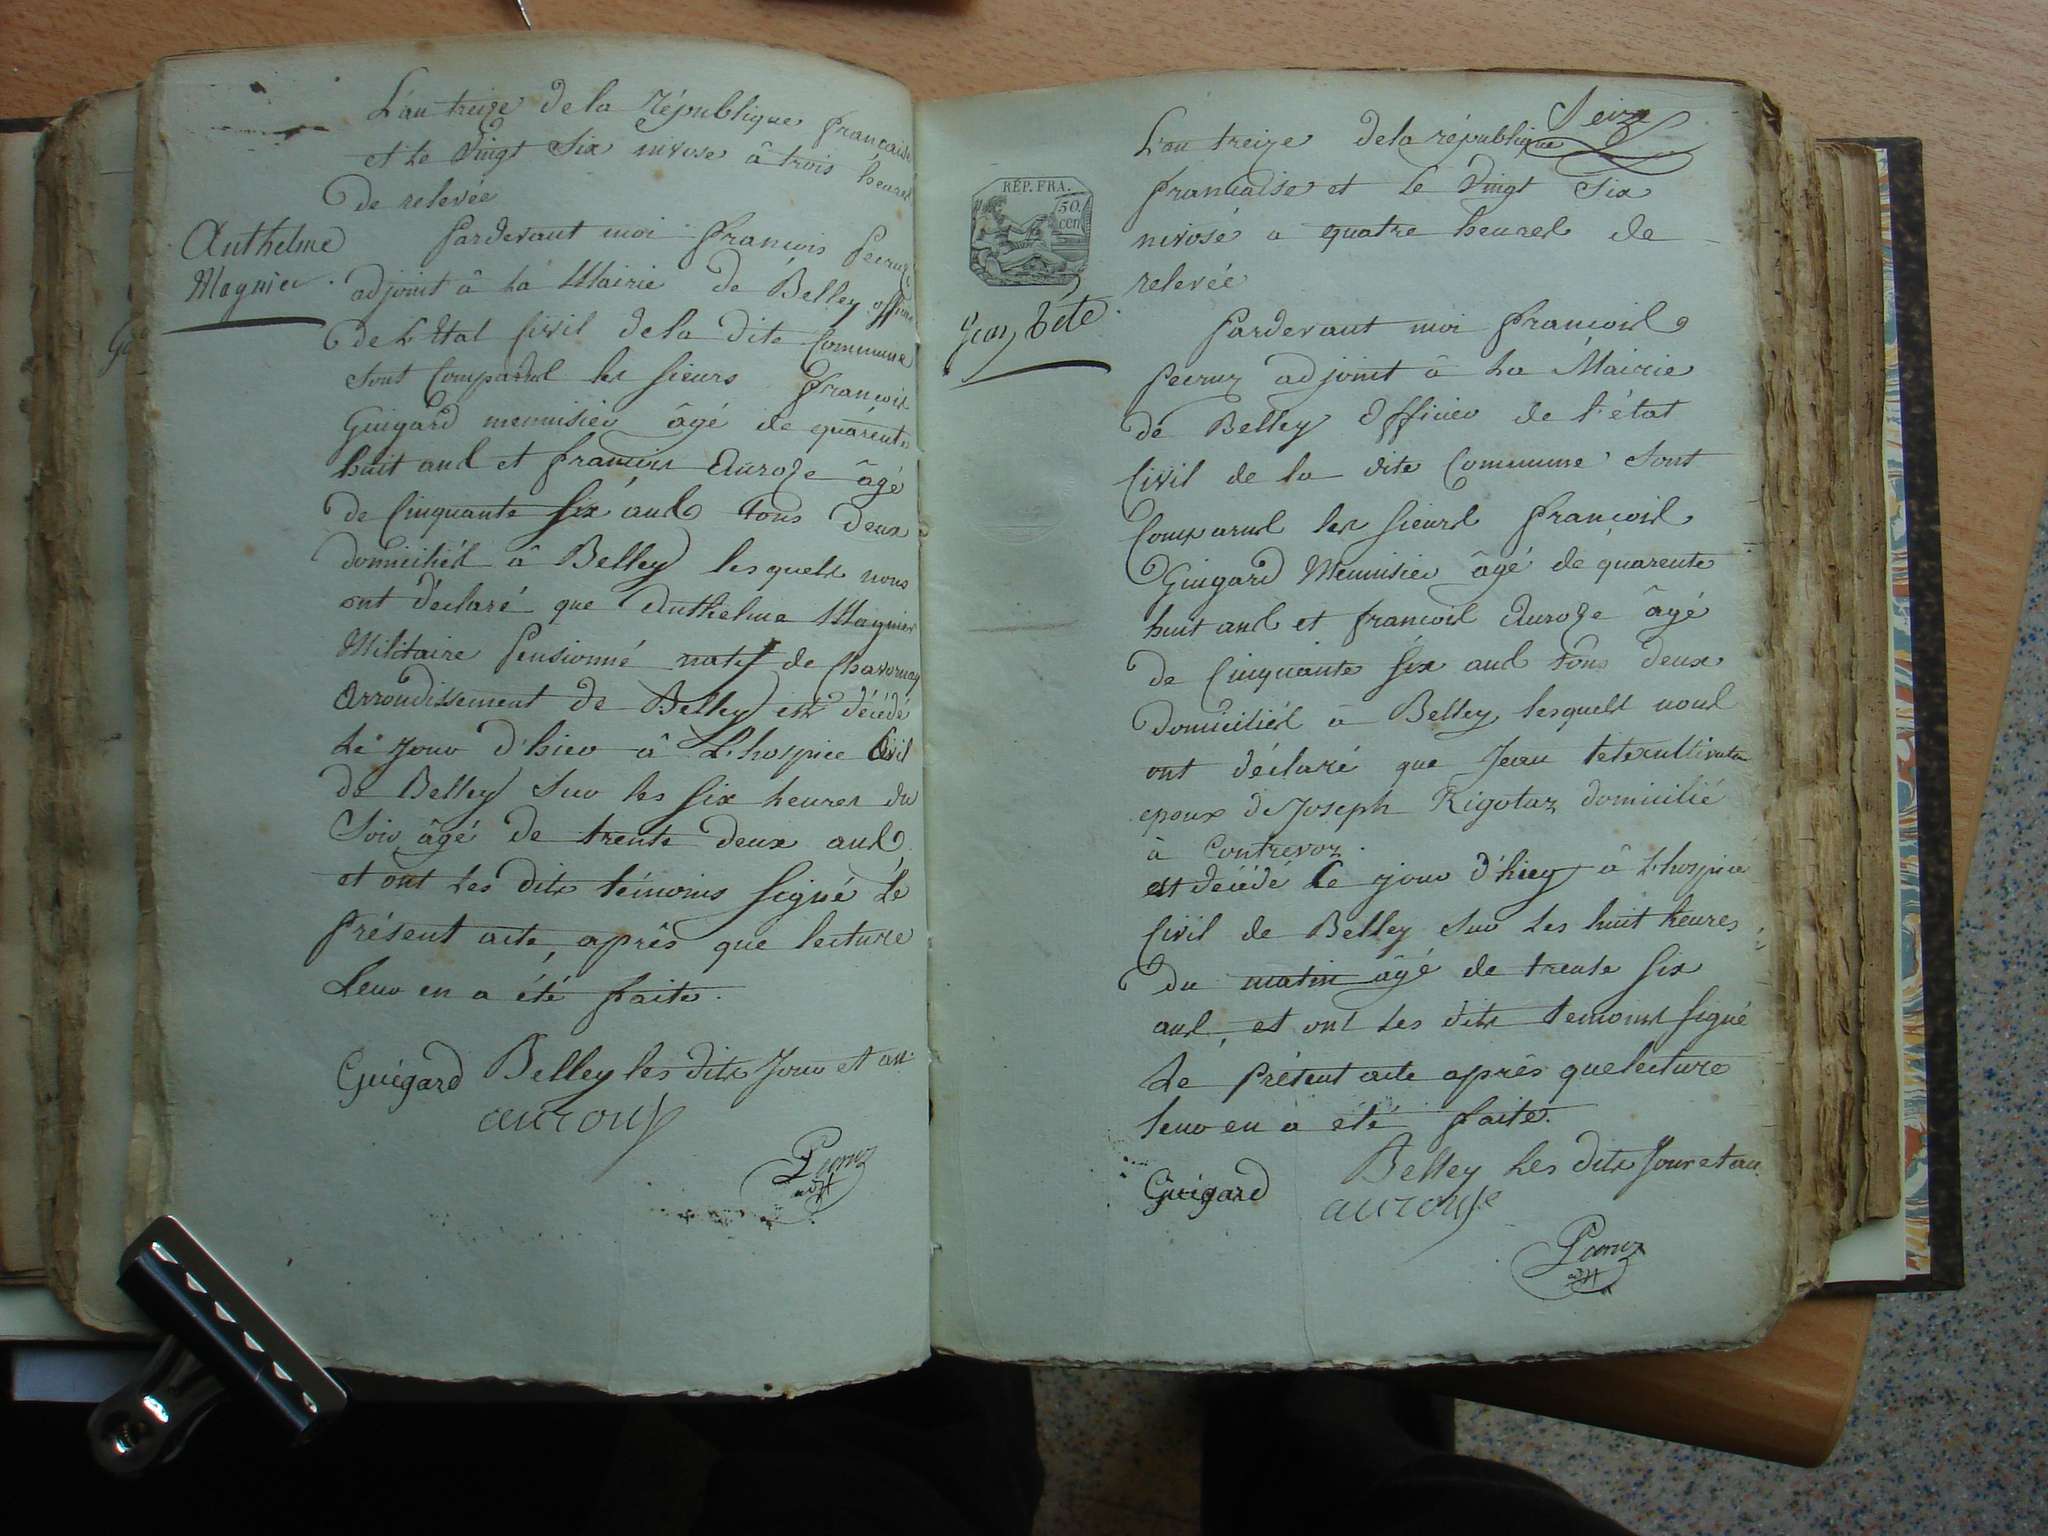 L'an treize de la République française
et le vingt six nivose à trois heures
de relevée
Anthelme
Magnier
Pardevant moi françois Peeruz
adjoint à la Mairie de Belley officier
de L'Etat Civil de la dite Commune
sont Comparus les sieurs françois
Guigard menuisier âgé de quarente
huit ans et françois Auroze âgé
de Cinquante six ans tous deux
domiciliés à Belley lesquels nous
ont déclaré que Anthelme Magnier
Militaire Pensionné natif de Chavornay
Arrondissement de Belley est décédé
Le jour d'hier à L'hospice Civil
de Belley sur les six heures du
Soir, âgé de trente deux ans
et ont Les dits témoins signé Le
Présent acte, après que lecture
Leur en a été faite.
Belley les dits Jour et an
Guigard
aurouse
Peeruz
adjt
Seize
L'an treize de la république
francaise et le vingt six
nivose a quatre heures de
relevée
RÉP. FRA.
50.
cen
Jean Tête
Pardevant moi françois
Peeruz adjoint à La Mairie
de Belley Officier de l'état
Civil de la dite Commune sont
Comparus les sieurs françois
Guigard Menuisier âgé de quarente
huit ans et francois Auroze âgé
de Cinquante six ans tous deux
domiciliés à Belley lesquels nous
ont déclaré que Jean tete cultivateur
epoux de Joseph Rigotaz domicilié
à Contrevoz.
est décédé Le jour d'hier à L'hospice
Civil de Belley sur Les huit heures
du matin âgé de trente six
ans, et ont Les dits temoins signé
Le Présent acte après que lecture
leur en a été faite.
Belley Les dits Jour et an
Guigard
aurouse
Peeruz
adjt